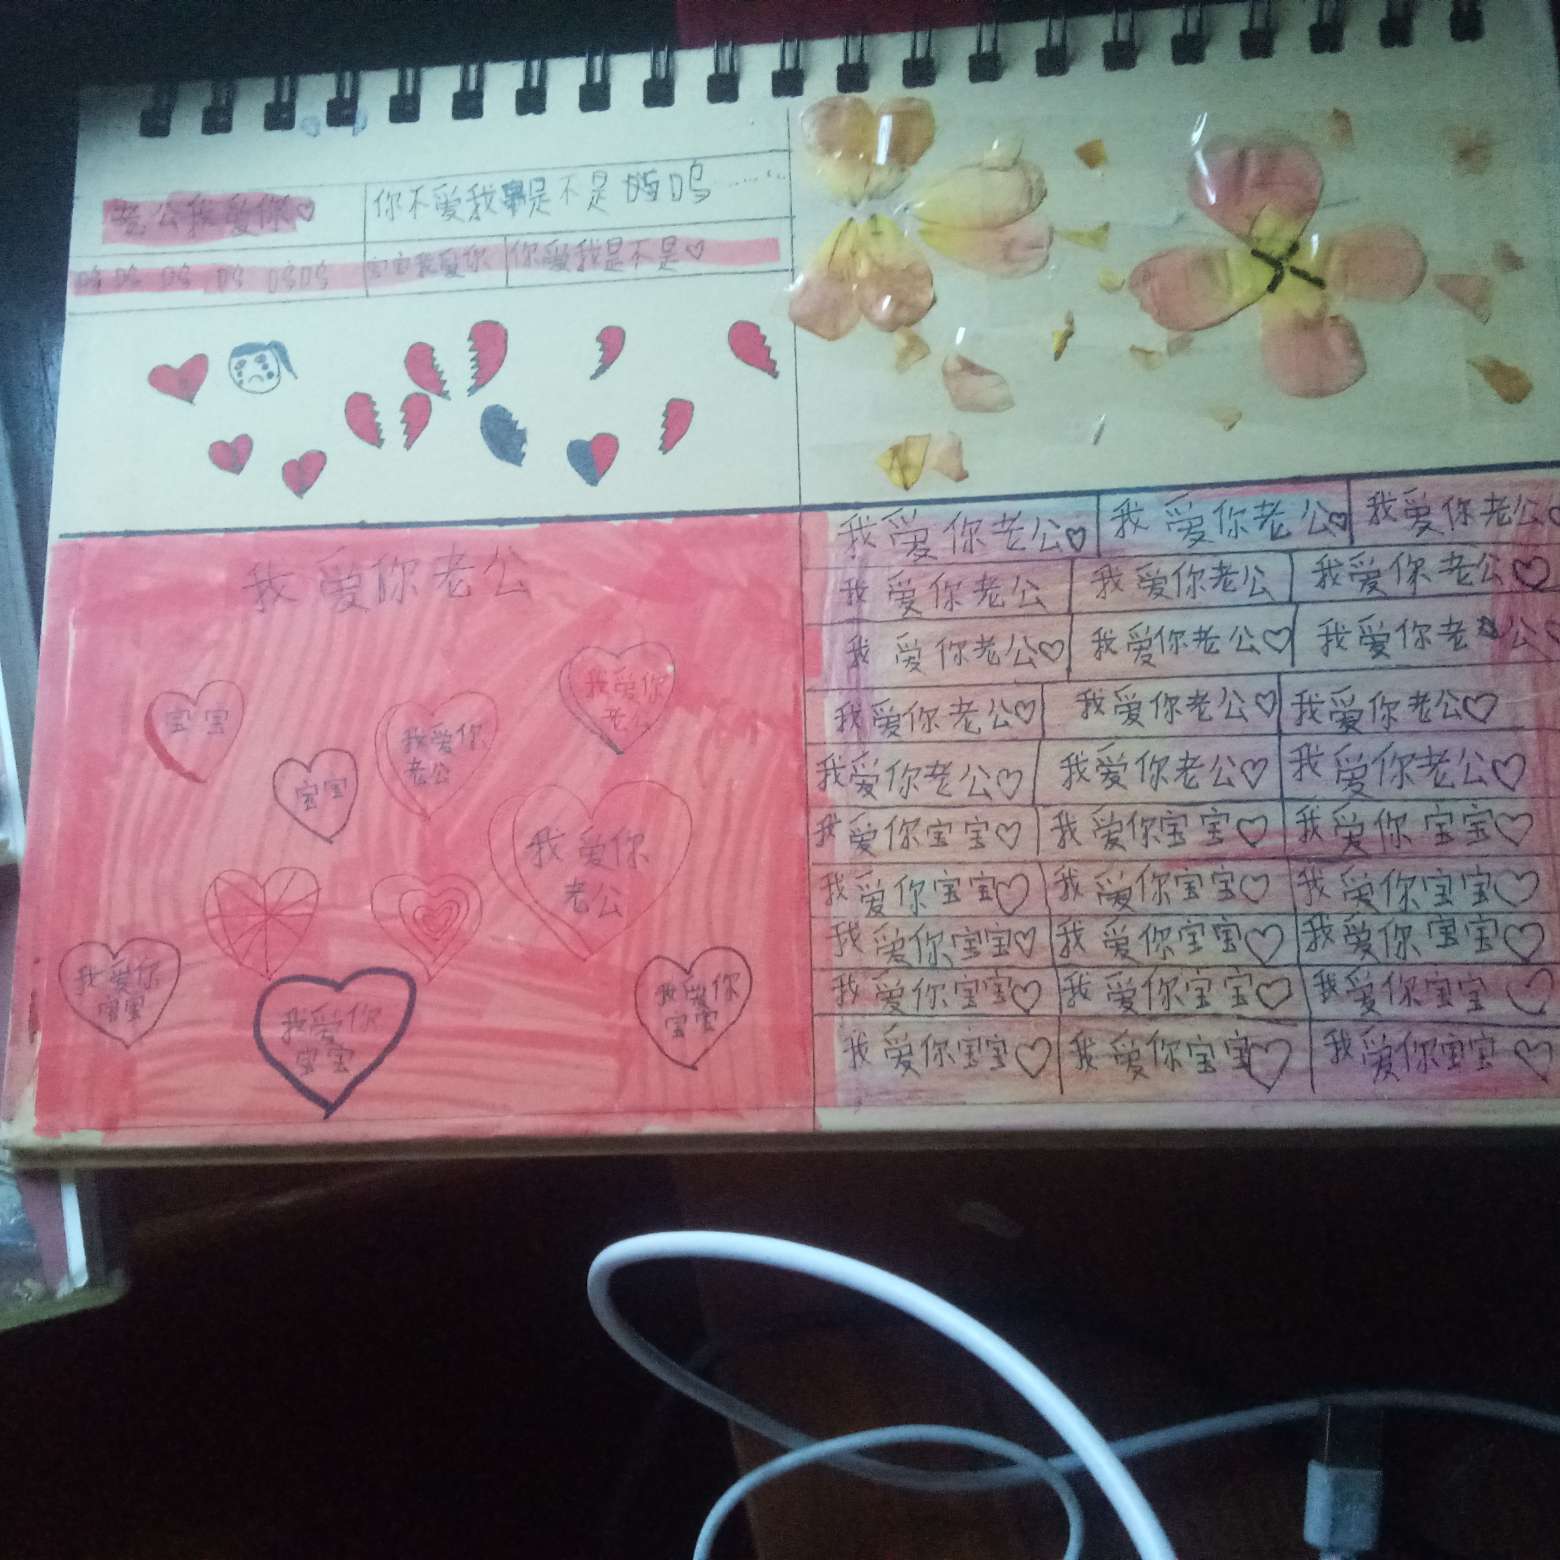 老公我爱你♡
你不爱我是不是呜呜……
呜呜 呜 呜 呜 呜呜 宝宝我爱你 你爱我是不是♡
我爱你老公
我爱你
老
宝宝
我爱你
老公
宝宝
我爱你
老公
我爱你
宝宝
我爱你
宝宝
我爱你
宝宝
我爱你老公♡ 我爱你老公♡ 我爱你老公♡
我爱你老公 我爱你老公 我爱你老公♡
我爱你老公♡ 我爱你老公♡ 我爱你老公♡
我爱你老公♡ 我爱你老公♡ 我爱你老公♡
我爱你老公♡ 我爱你老公♡ 我爱你老公♡
我爱你宝宝♡ 我爱你宝宝♡ 我爱你宝宝♡
我爱你宝宝♡ 我爱你宝宝♡ 我爱你宝宝♡
我爱你宝宝♡ 我爱你宝宝♡ 我爱你宝宝♡
我爱你宝宝♡ 我爱你宝宝♡ 我爱你宝宝♡
我爱你宝宝♡ 我爱你宝宝♡ 我爱你宝宝♡